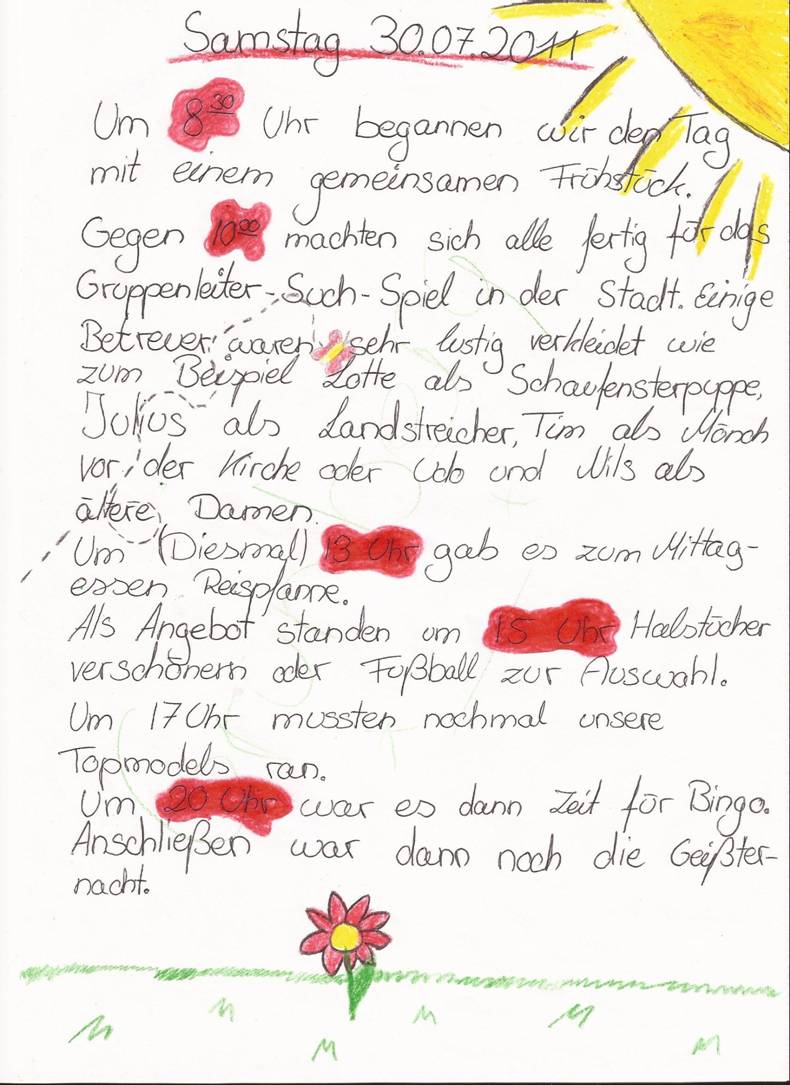 Samstag 30.07.2011
Um 8³⁰ Uhr begannen wir den Tag
mit einem gemeinsamen Frühstück.
Gegen 10⁰⁰ machten sich alle fertig für das
Gruppenleiter-Such-Spiel in der Stadt. Einige
Betreuer waren sehr lustig verkleidet wie
zum Beispiel Lotte als Schaufensterpuppe,
Julius als Landstreicher, Tim als Mönch
vor der Kirche oder Udo und Nils als
ältere Damen.
Um (Diesmal) 13 Uhr gab es zum Mittag-
essen Reispfanne.
Als Angebot standen um 15 Uhr Halstücher
verschönern oder Fußball zur Auswahl.
Um 17 Uhr mussten nochmal unsere
Topmodels ran.
Um 20 Uhr war es dann Zeit für Bingo.
Anschließen war dann noch die Geißter-
nacht.